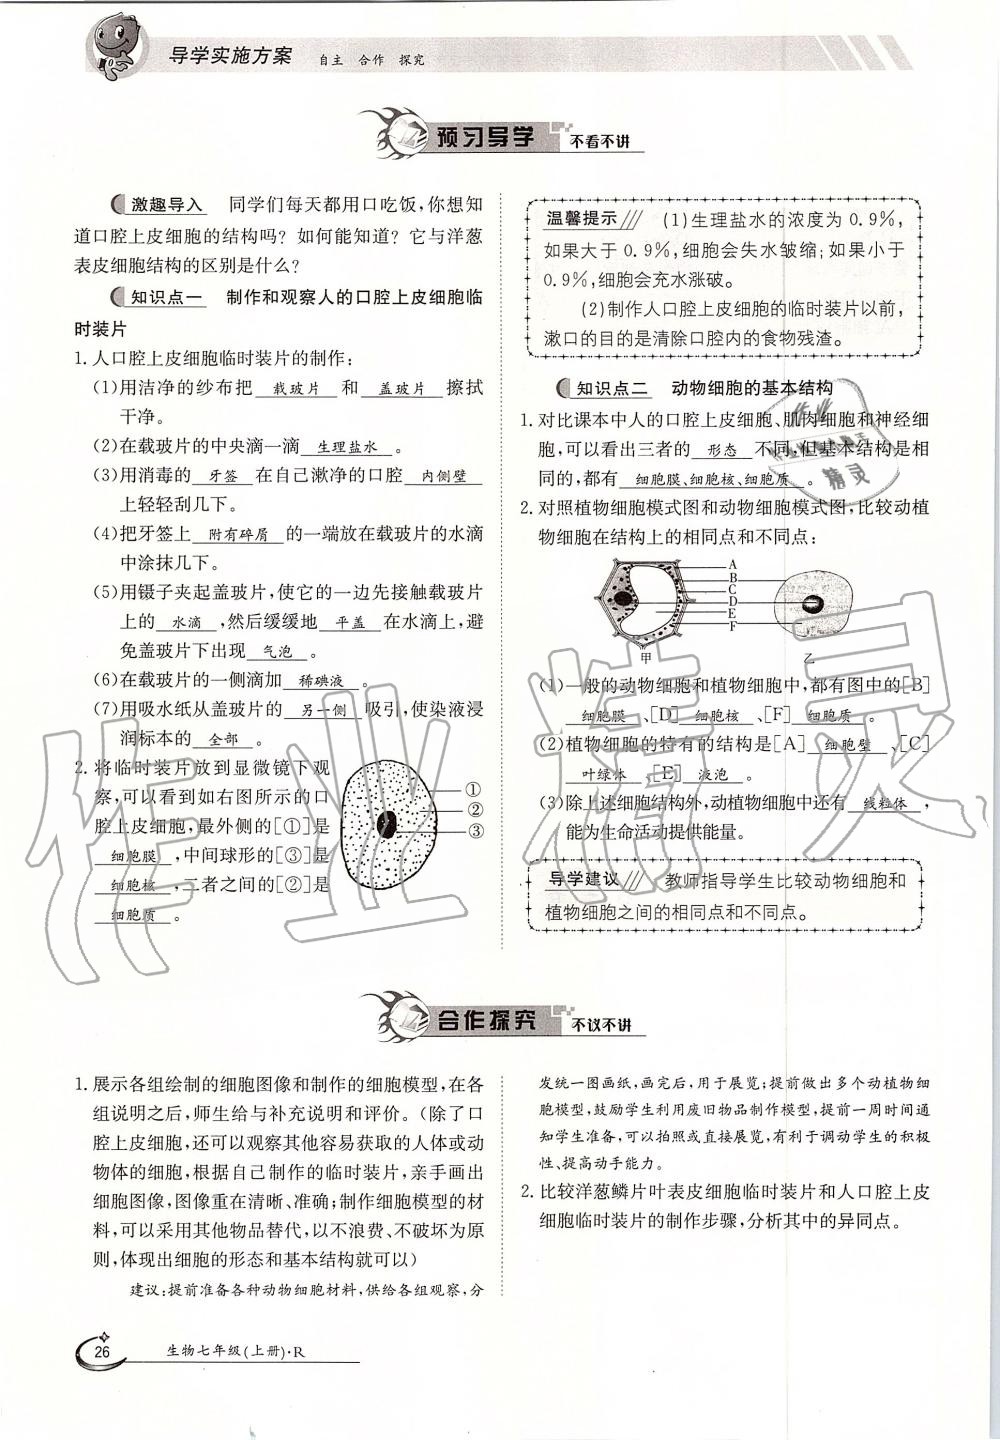 导学实施方案 自主 合作 探究
预习导学 不看不讲
激趣导入 同学们每天都用口吃饭,你想知
道口腔上皮细胞的结构吗？如何能知道？它与洋葱
表皮细胞结构的区别是什么？
知识点一 制作和观察人的口腔上皮细胞临
时装片
1. 人口腔上皮细胞临时装片的制作:
(1)用洁净的纱布把 载玻片 和 盖玻片 擦拭
干净。
(2)在载玻片的中央滴一滴 生理盐水 。
(3)用消毒的 牙签 在自己漱净的口腔 内侧壁
上轻轻刮几下。
(4)把牙签上 附有碎屑 的一端放在载玻片的水滴
中涂抹几下。
(5)用镊子夹起盖玻片,使它的一边先接触载玻片
上的 水滴 ,然后缓缓地 平盖 在水滴上,避
免盖玻片下出现 气泡 。
(6)在载玻片的一侧滴加 稀碘液 。
(7)用吸水纸从盖玻片的 另一侧 吸引,使染液浸
润标本的 全部 。
2. 将临时装片放到显微镜下观
察,可以看到如右图所示的口
腔上皮细胞,最外侧的[①]是
细胞膜 ,中间球形的[③]是
细胞核 ,二者之间的[②]是
细胞质 。
①
②
③
温馨提示 (1)生理盐水的浓度为 0.9%,
如果大于 0.9%,细胞会失水皱缩;如果小于
0.9%,细胞会充水涨破。
(2)制作人口腔上皮细胞的临时装片以前,
漱口的目的是清除口腔内的食物残渣。
知识点二 动物细胞的基本结构
1. 对比课本中人的口腔上皮细胞、肌肉细胞和神经细
胞,可以看出三者的 形态 不同,但基本结构是相
同的,都有 细胞膜、细胞核、细胞质 。
2. 对照植物细胞模式图和动物细胞模式图,比较动植
物细胞在结构上的相同点和不同点:
A
B
C
D
E
F
甲 乙
(1)一般的动物细胞和植物细胞中,都有图中的[B]
细胞膜 、[D] 细胞核 、[F] 细胞质 。
(2)植物细胞的特有的结构是[A] 细胞壁 、[C]
叶绿体 、[E] 液泡 。
(3)除上述细胞结构外,动植物细胞中还有 线粒体 ,
能为生命活动提供能量。
导学建议 教师指导学生比较动物细胞和
植物细胞之间的相同点和不同点。
合作探究 不议不讲
1. 展示各组绘制的细胞图像和制作的细胞模型,在各
组说明之后,师生给与补充说明和评价。(除了口
腔上皮细胞,还可以观察其他容易获取的人体或动
物体的细胞,根据自己制作的临时装片,亲手画出
细胞图像,图像重在清晰、准确;制作细胞模型的材
料,可以采用其他物品替代,以不浪费、不破坏为原
则,体现出细胞的形态和基本结构就可以)
建议:提前准备各种动物细胞材料,供给各组观察,分
发统一图画纸,画完后,用于展览;提前做出多个动植物细
胞模型,鼓励学生利用废旧物品制作模型,提前一周时间通
知学生准备,可以拍照或直接展览,有利于调动学生的积极
性、提高动手能力。
2. 比较洋葱鳞片叶表皮细胞临时装片和人口腔上皮
细胞临时装片的制作步骤,分析其中的异同点。
26 生物七年级(上册)·R
作业精灵